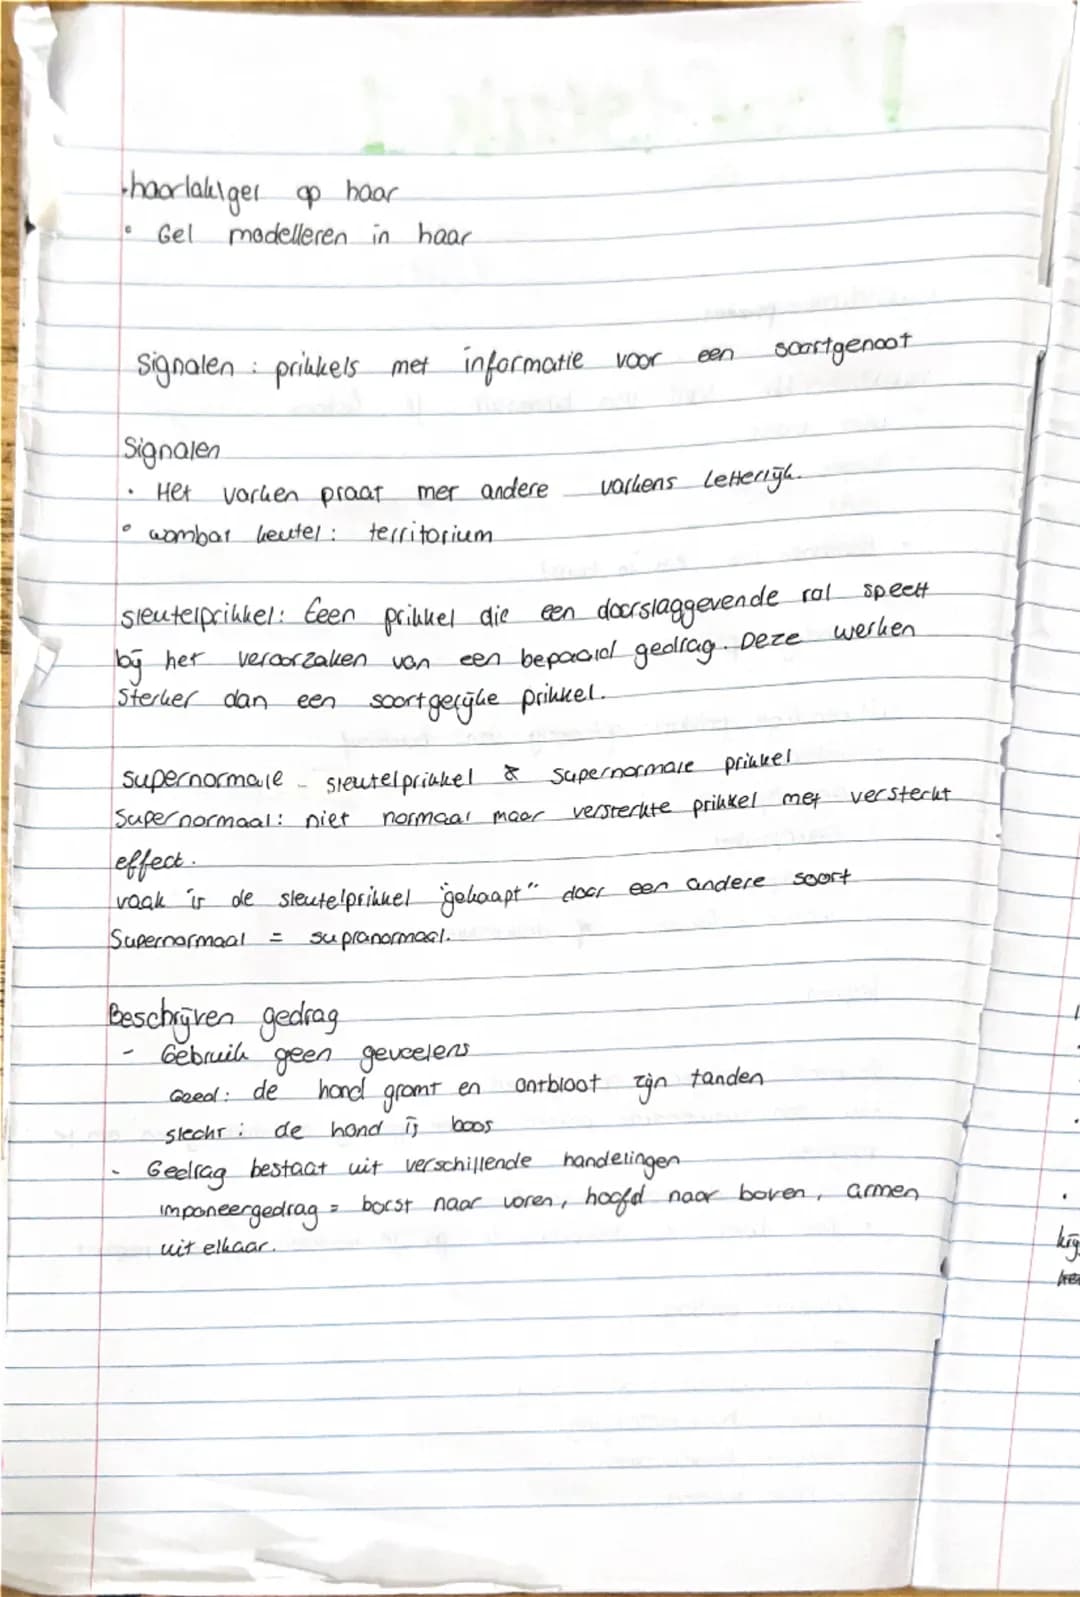 haarlak ger op haar
• Gel modelleren in haar
Signalen : prikkels met informatie voor een soortgenoot
Signalen
• Het varken praat met andere varkens letterlijk.
• wombat keutel: territorium
sleutelprikkel: Eeen prikkel die een doorslaggevende rol speelt
bij het veroorzaken van een bepaald gedrag. Deze werken
sterker dan een soortgerijke prikkel.
supernormale - sleutelprikkel & supernormale prikkel
Supernormaal: niet normaal maar versterkte prikkel met versterkt
effect.
vaak is de sleutelprikkel "gekaapt" door een andere soort
Supernormaal = supranormaal.
Beschrijven gedrag
- Gebruik geen gevoelens
Goed: de hond gromt en ontbloot zijn tanden
slecht: de hond is boos
- Gedrag bestaat uit verschillende handelingen
imponeergedrag = borst naar voren, hoofd naar boven, armen
uit elkaar.